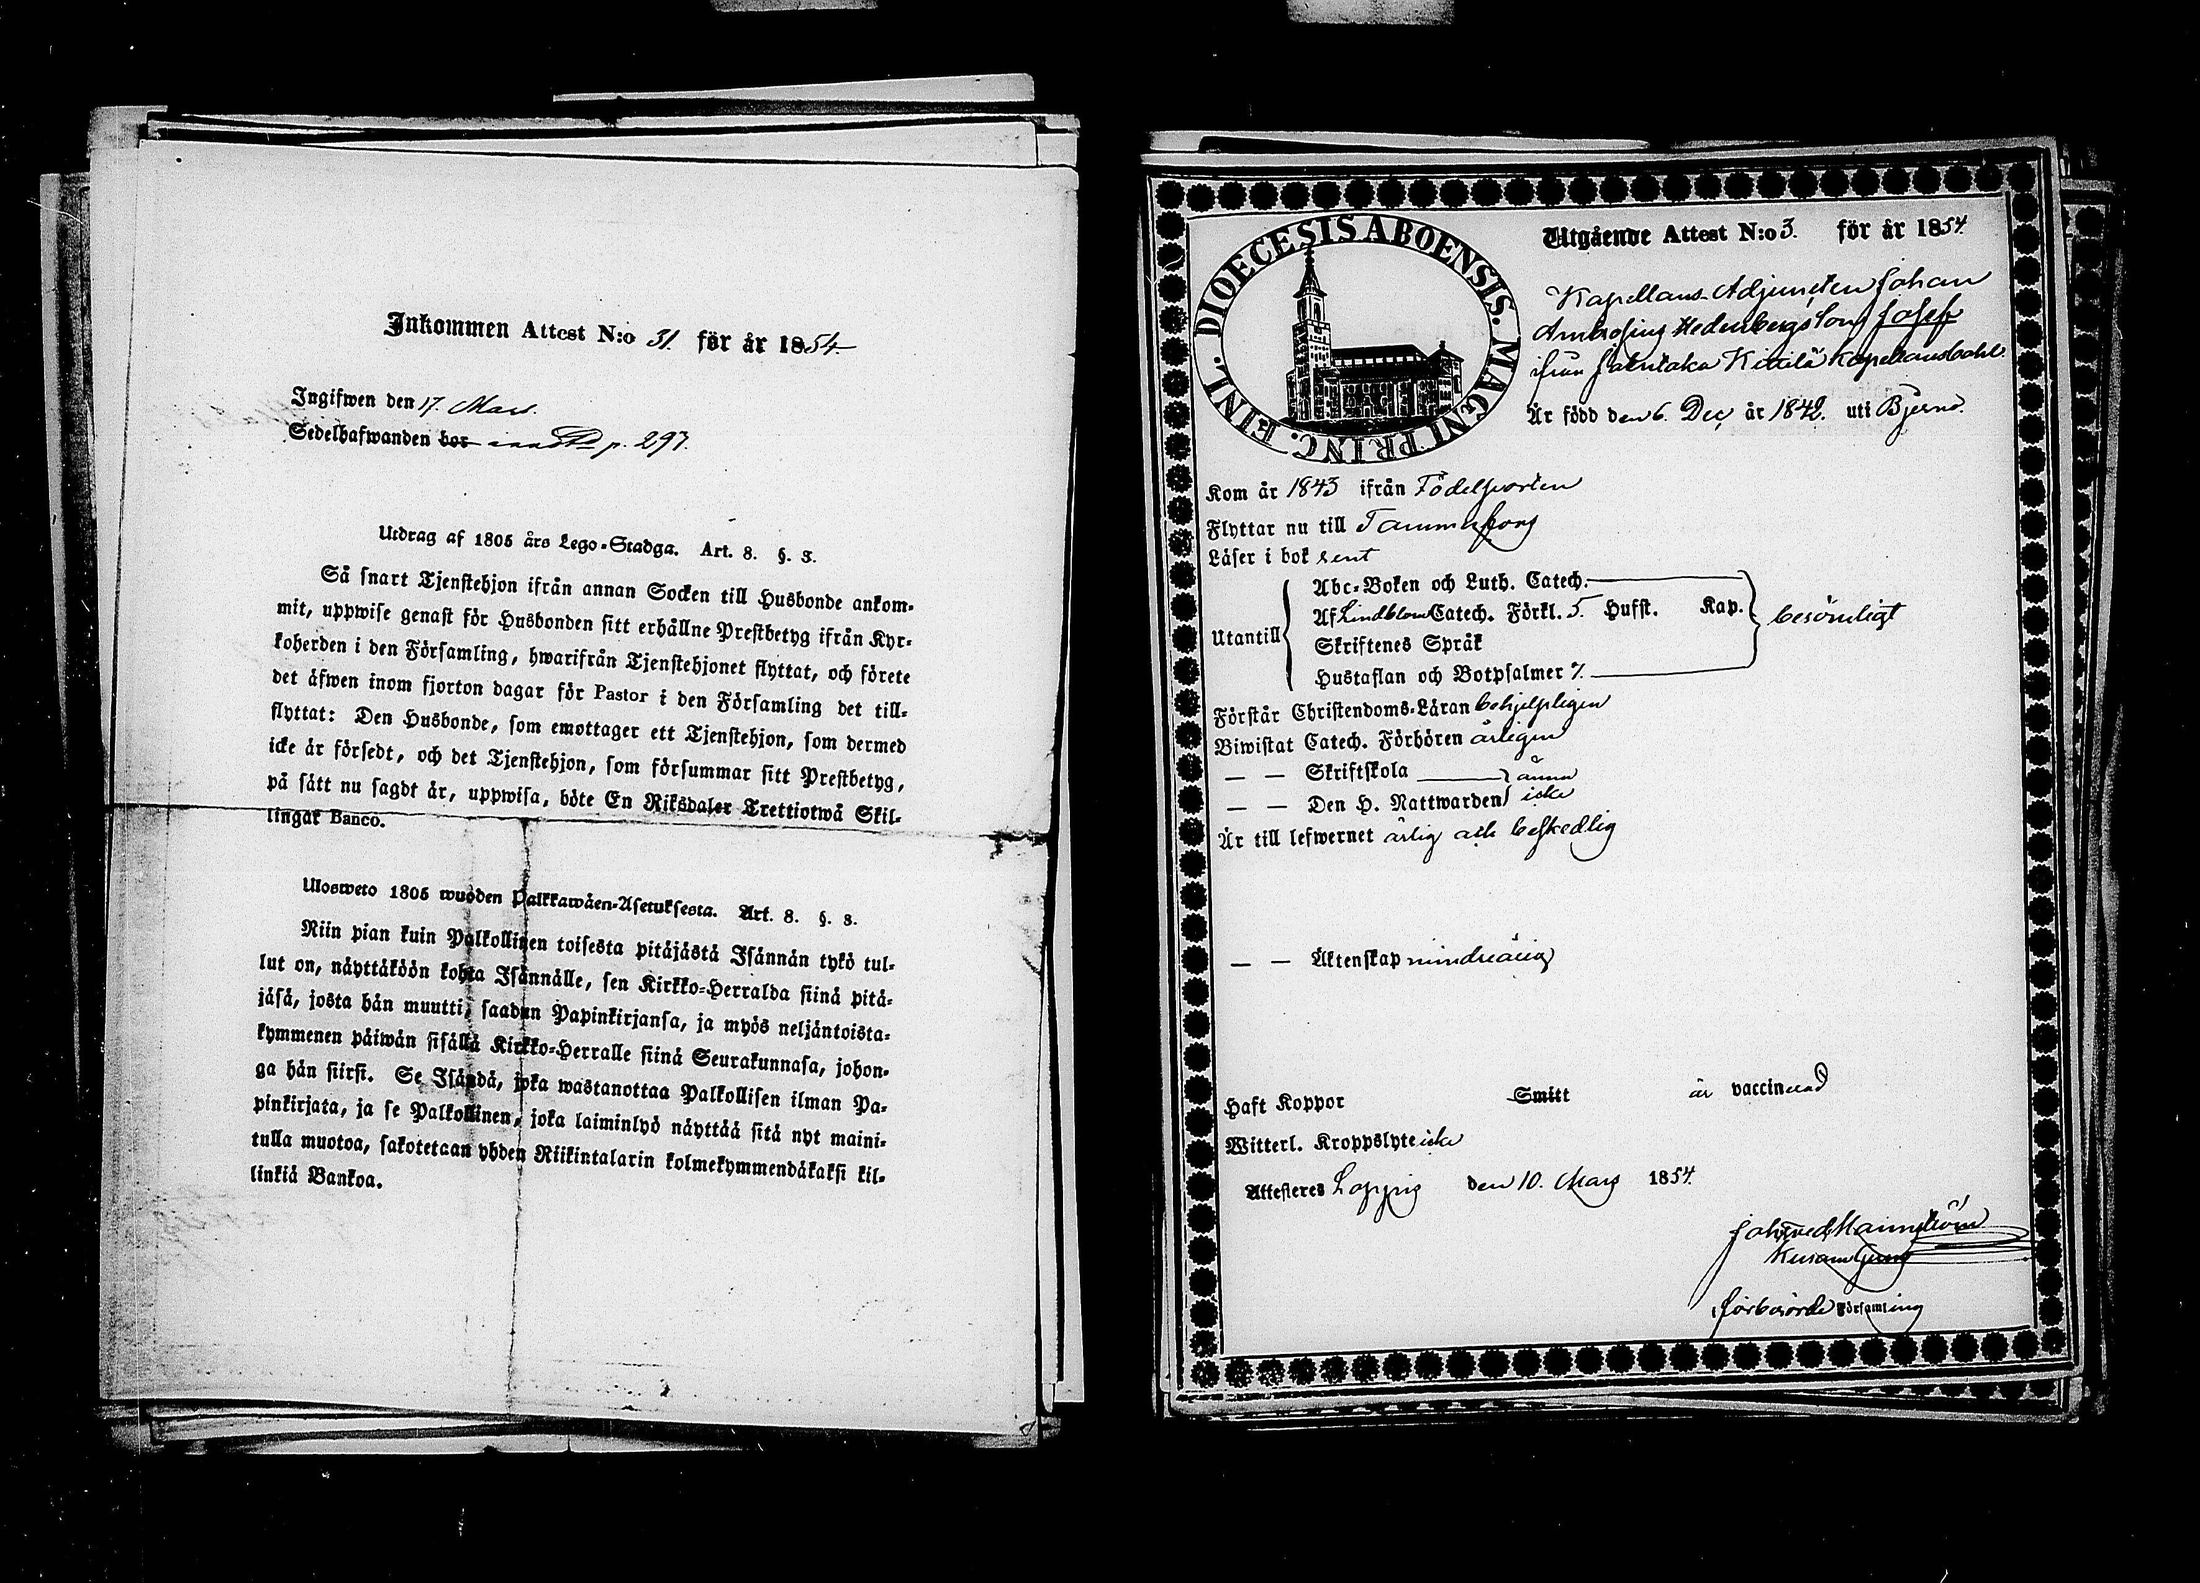 Inkommen Attest N:o 31. för år 1854.
Ingifwen den 17. Mars.
Sedelhafwanden bor p. 297.
Utdrag af 1805 års Lego-Stadga. Art. 8. §. 3.
Så snart Tjenstehjon ifrån annan Socken till Husbonde ankom-
mit, uppwise genast för Husbonden sitt erhållne Prestbetyg ifrån Kyr-
koherden i den Församling, hwarifrån Tjenstehjonet flyttat, och förete
det äfwen inom fjorton dagar för Pastor i den Församling det till-
flyttat: Den Husbonde, som emottager ett Tjenstehjon, som dermed
icke är försedt, och det Tjenstehjon, som försummar sitt Prestbetyg,
på sätt nu sagdt är, uppwisa, böte En Riksdaler Trettiotwå Skil-
lingar Banco.
Ulosweto 1805 wuoden Palkkawäen-Asetuksesta. Art. 8. §. 3.
Niin pian kuin Palkollinen toisesta pitäjästä Isännän tykö tul-
lut on, näyttäköön kohta Isännälle, sen Kirkko-Herralda siinä pitä-
jäsä, josta hän muutti, saadun Papinkirjansa, ja myös neljäntoista-
kymmenen päiwän sisällä Kirkko-Herralle siinä Seurakunnasa, johon-
ga hän siirsi. Se Isändä, joka wastanottaa Palkollisen ilman Pa-
pinkirjata, ja se Palkollinen, joka laiminlyö näyttää sitä nyt maini-
tulla muotoa, sakotetaan yhden Riikintalarin kolmekymmendäkaksi kil-
linkiä Bankoa.
DIOECESIS ABOENSIS. MAGNI PRINC. FINL.
Utgående Attest N:o 3. för år 1854
Kapellans-Adjuncten Johan
Ambrosius Hedenbergs Son Josef
ifrån Jalntaka Kittilä Kapellansbohl.
Är född den 6. Dec, år 1842. uti Bjerno.
Kom år 1843 ifrån Födelseorten
Flyttar nu till Tammerfors
Läser i bok rent
Abc-Boken och Luth. Catech.
Utantill Af Lindbloms Catech. Förkl. 5. Hufst. Kap. besörjligt
Skriftenes Språk
Hustaflan och Botpsalmer 7.
Förstår Christendoms-Läran behjelpligen
Biwistat Catech. Förhören årligen
— — Skriftskola ännu
— — Den H. Nattwarden icke
Är till lefwernet ärlig och beskedlig
— — Äktenskap minderårig
Haft Koppor Smitt är vaccinerad
Witterl. Kroppslyte icke
Attesteres Loppis den 10. Mars 1854.
förberörde Församling